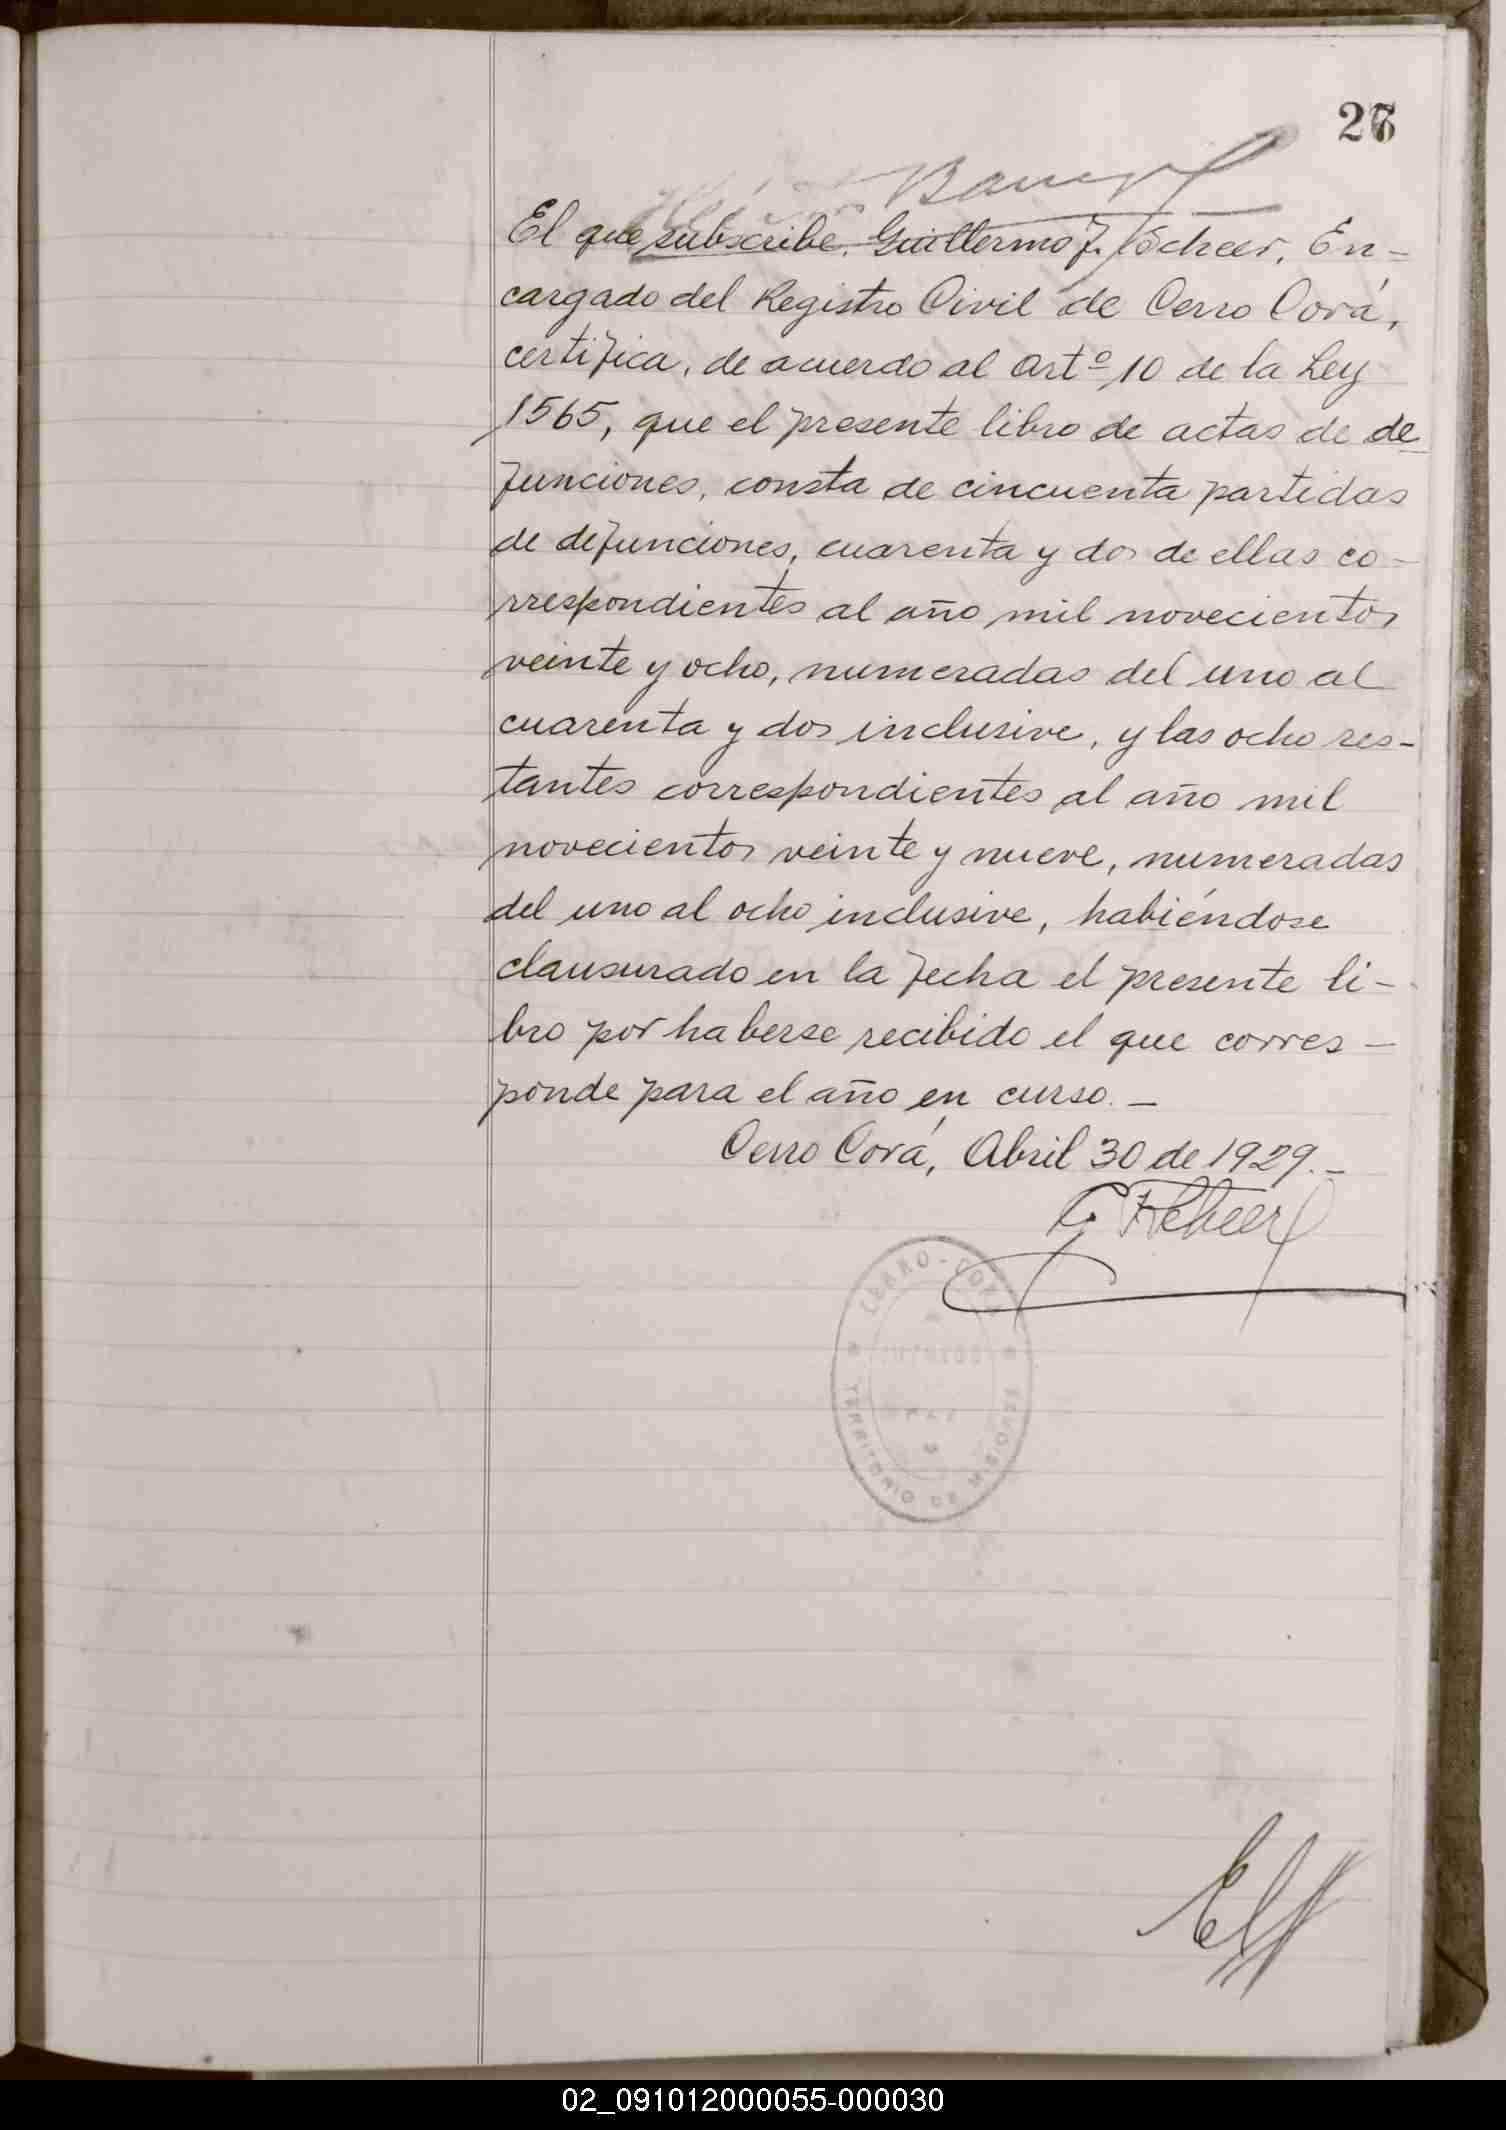 26
El que subscribe, Guillermo F. Scheer, En-
cargado del Registro Civil de Cerro Corá,
certifica, de acuerdo al artº 10 de la Ley
1565, que el presente libro de actas de de
funciones, consta de cincuenta partidas
de defunciones, cuarenta y dos de ellas co-
rrespondientes al año mil novecientos
veinte y ocho, numeradas del uno al
cuarenta y dos inclusive, y las ocho res-
tantes correspondientes al año mil
novecientos veinte y nueve, numeradas
del uno al ocho inclusive, habiéndose
clausurado en la fecha el presente li-
bro por haberse recibido el que corres-
ponde para el año en curso.-
Cerro Corá, Abril 30 de 1929.-
G F Scheer
CERRO-CORÁ
TERRITORIO DE MISIONES
02_091012000055-000030